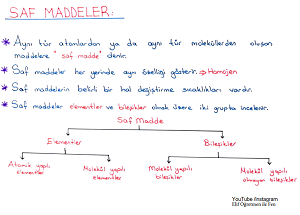 SAF MADDELER:
* Aynı tür atomlardan ya da aynı tür moleküllerden oluşan
maddelere "saf madde" denir.
* Saf maddeler her yerinde aynı özelliği gösterir. ⇒ Homojen
* Saf maddelerin belirli bir hal değiştirme sıcaklıkları vardır.
* Saf maddeler elementler ve bileşikler olmak üzere iki grupta incelenir.
Saf Madde
Elementler Bileşikler
Atomik yapılı elementler
Molekül yapılı elementler
Molekül yapılı bileşikler
Molekül yapılı olmayan bileşikler
YouTube/Instagram
Elif Öğretmen ile Fen